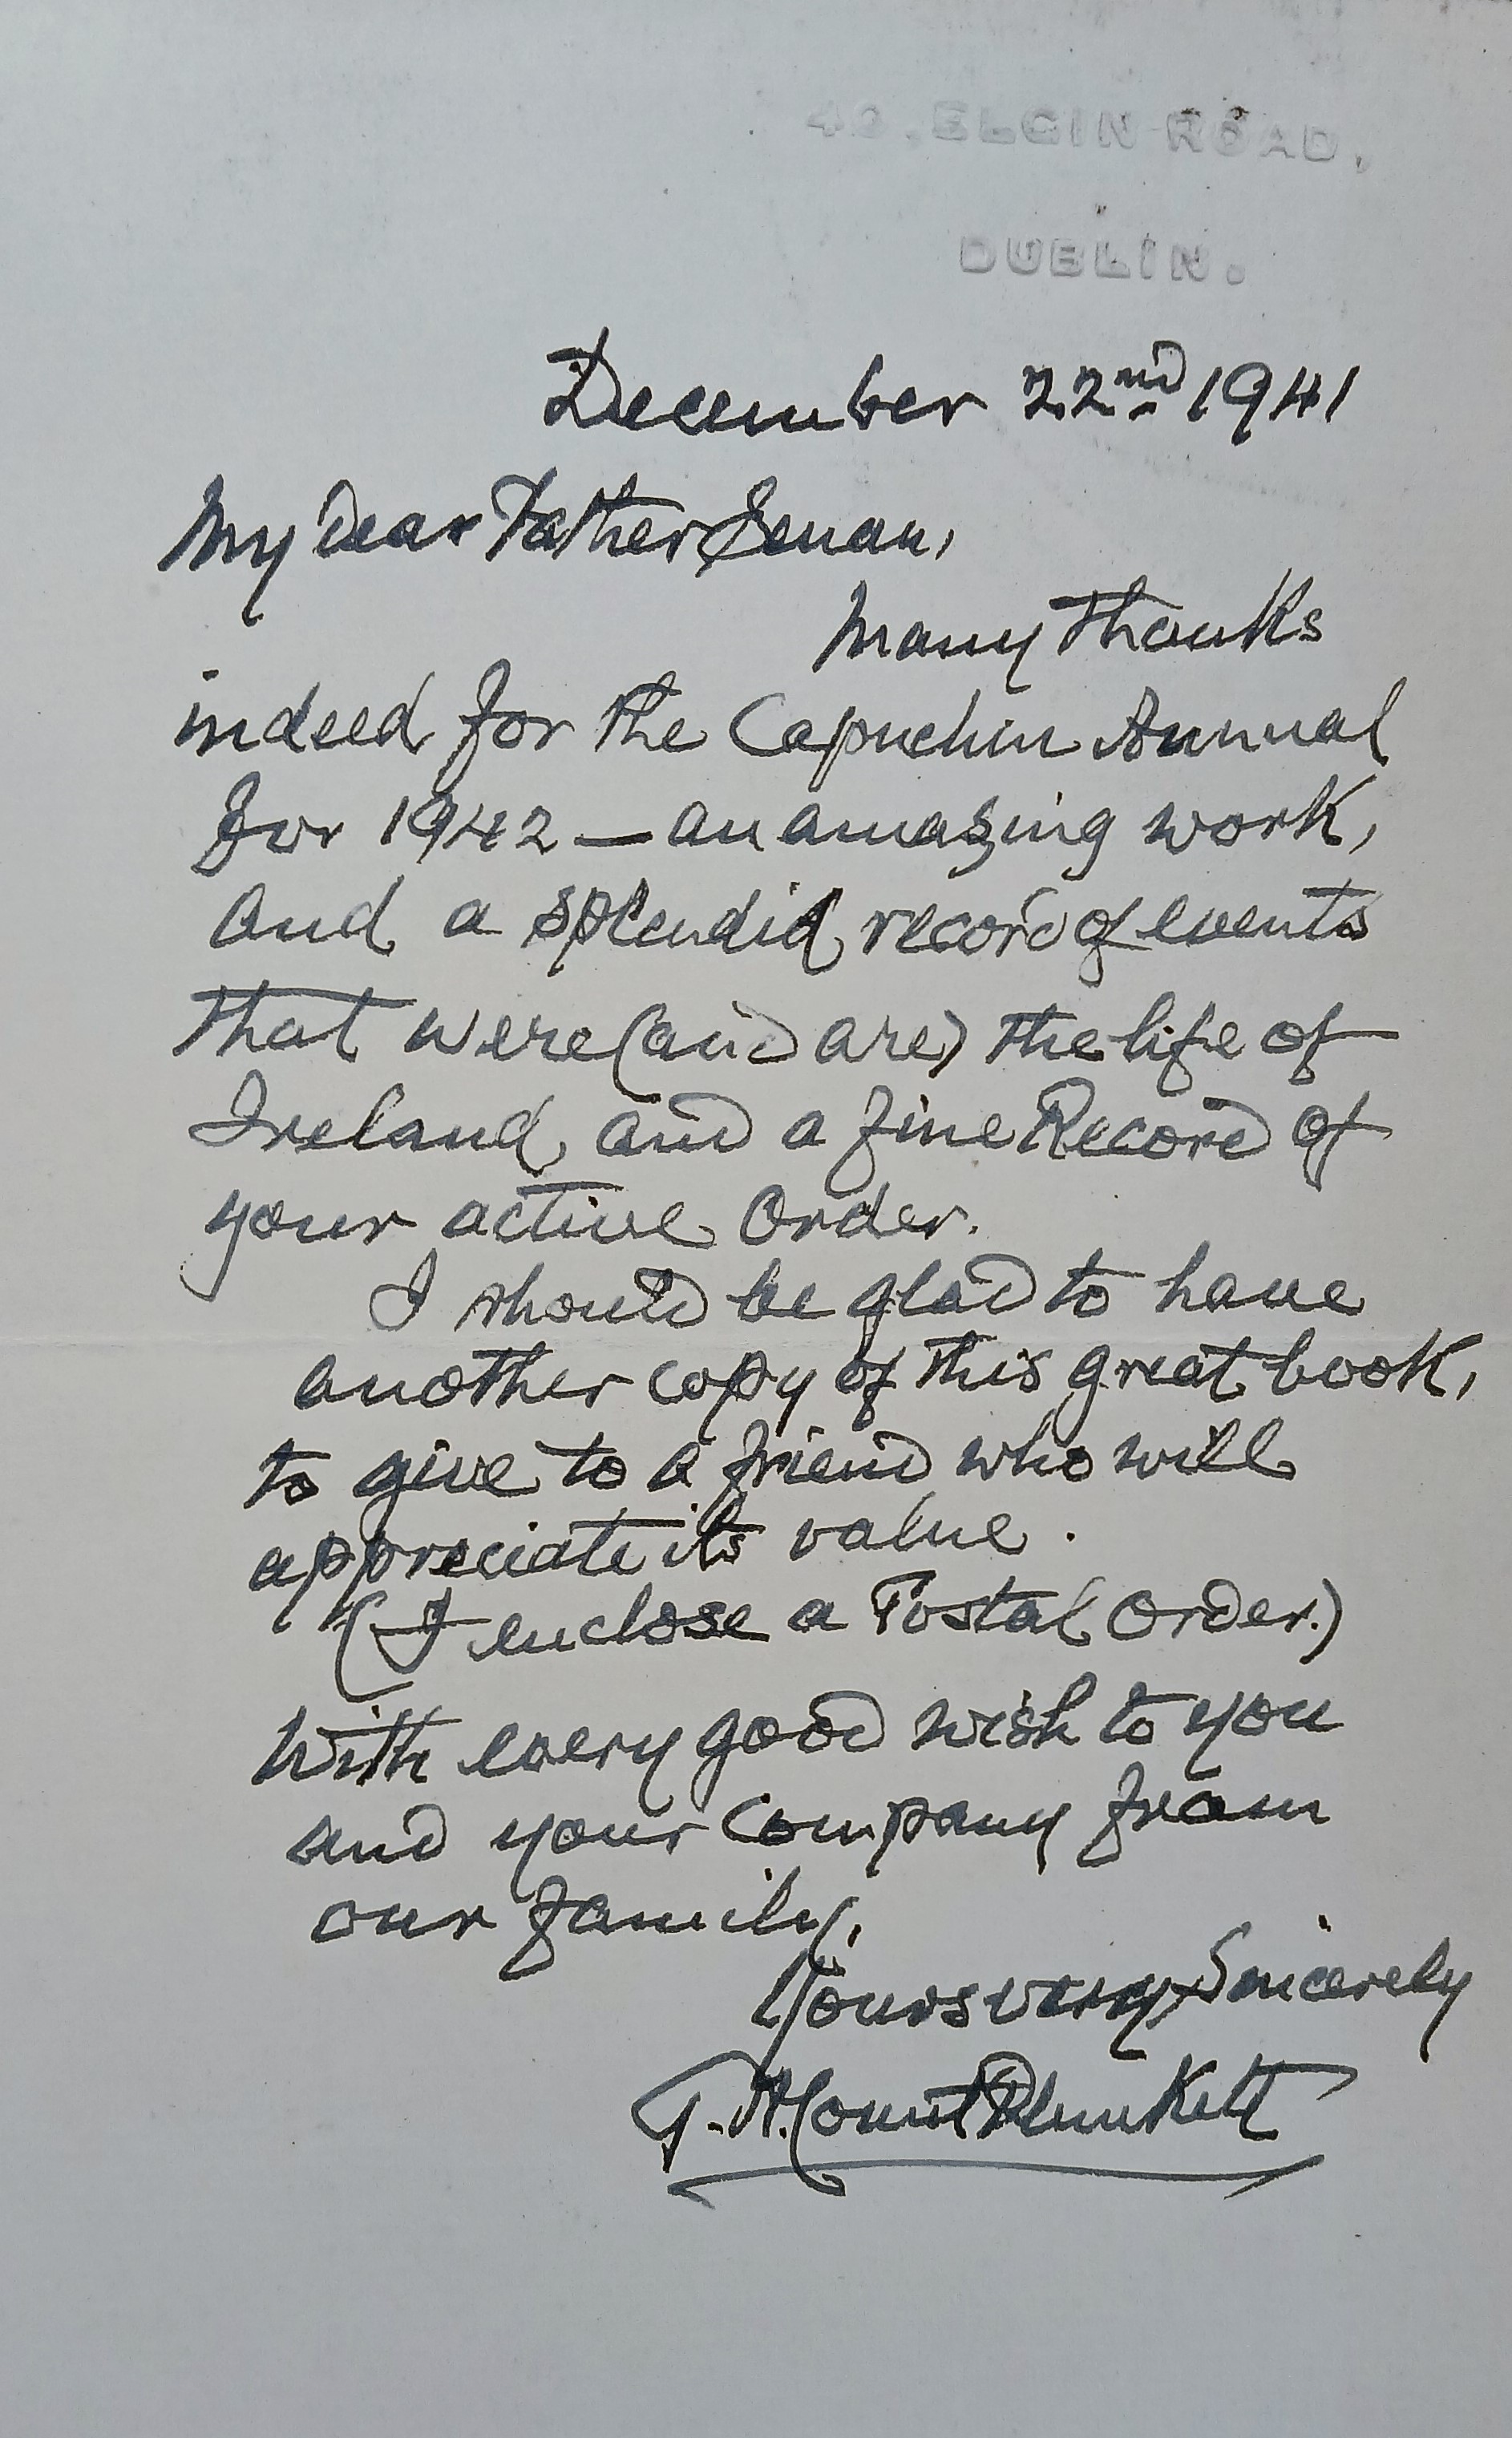 40, ELGIN ROAD,
DUBLIN.
December 22nd 1941
My Dear Father Senan,
Many Thanks
indeed for the Capuchin Annual
for 1942 — an amazing work,
and a splendid record of events
that were (and are) the life of
Ireland, and a fine Record of
your active Order.
I should be glad to have
another copy of this great book,
to give to a friend who will
appreciate its value.
(I enclose a Postal Order.)
With every good wish to you
and your Company from
our family,
Yours very Sincerely
G. N. Count Plunkett